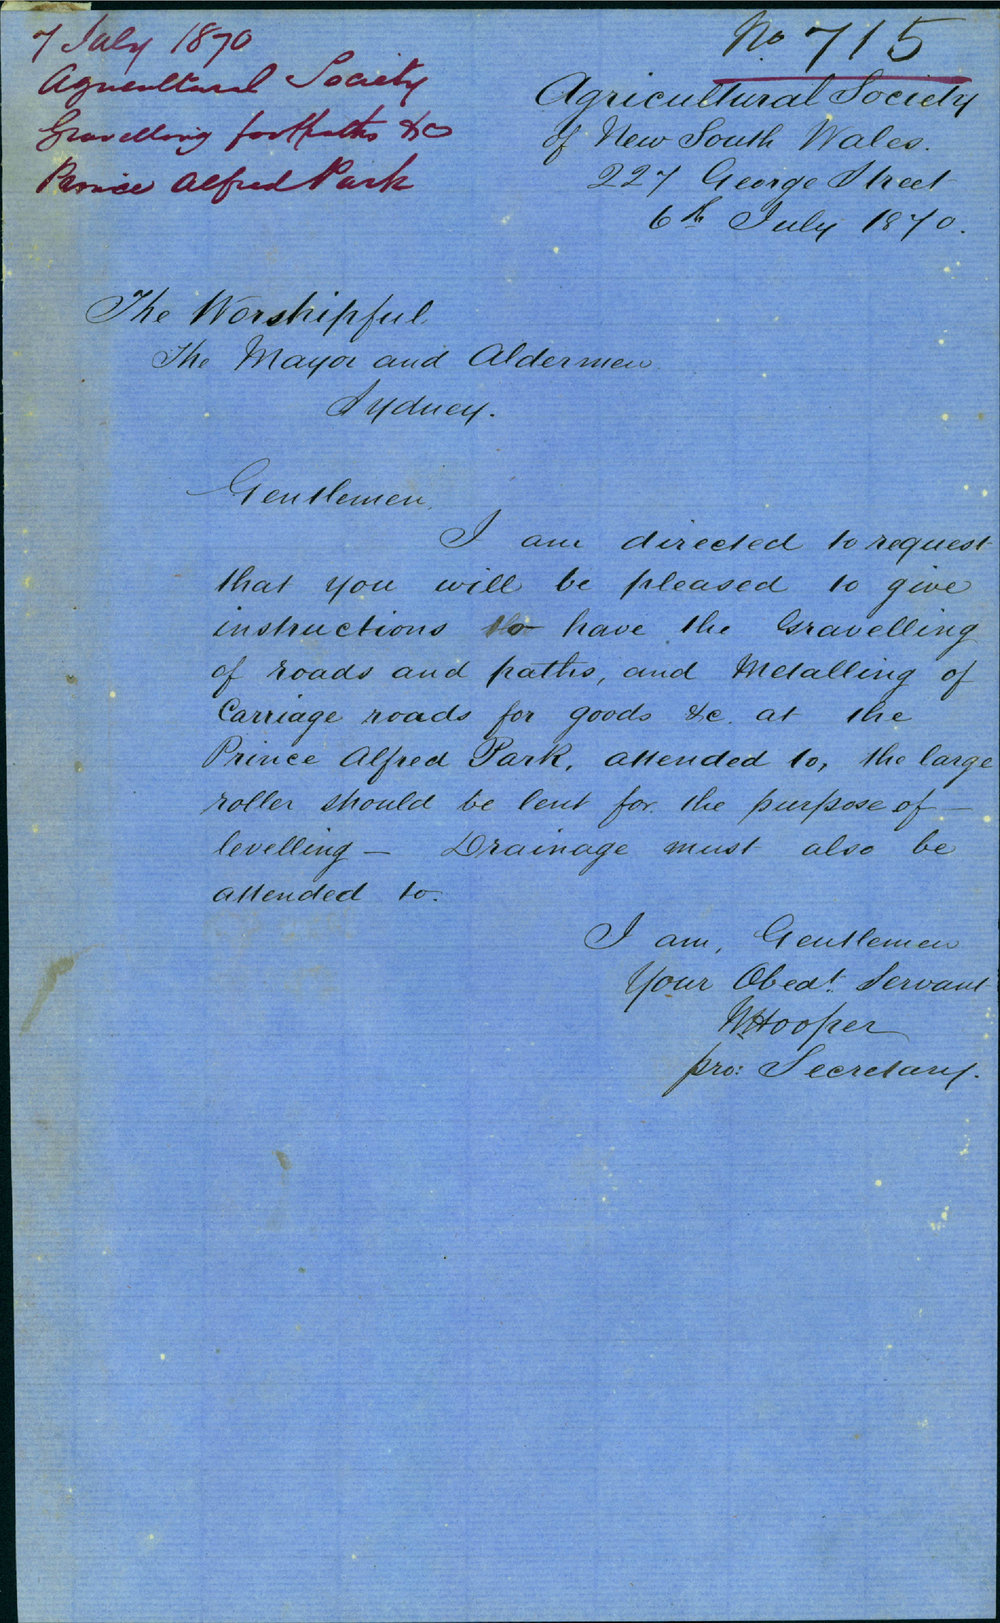 7 July 1870
Agricultural Society
Gravelling footpaths &c
Prince Alfred Park
No. 715
Agricultural Society
of New South Wales.
227 George Street
6th July 1870.
The Worshipful
The Mayor and Aldermen
Sydney.
Gentlemen,
I am directed to request
that you will be pleased to give
instructions to have the Gravelling
of roads and paths, and Metalling of
Carriage roads for goods &c. at the
Prince Alfred Park, attended to, the large
roller should be lent for the purpose of —
levelling — Drainage must also be
attended to.
I am, Gentlemen
Your Obedt. Servant
WHooper
pro: Secretary.